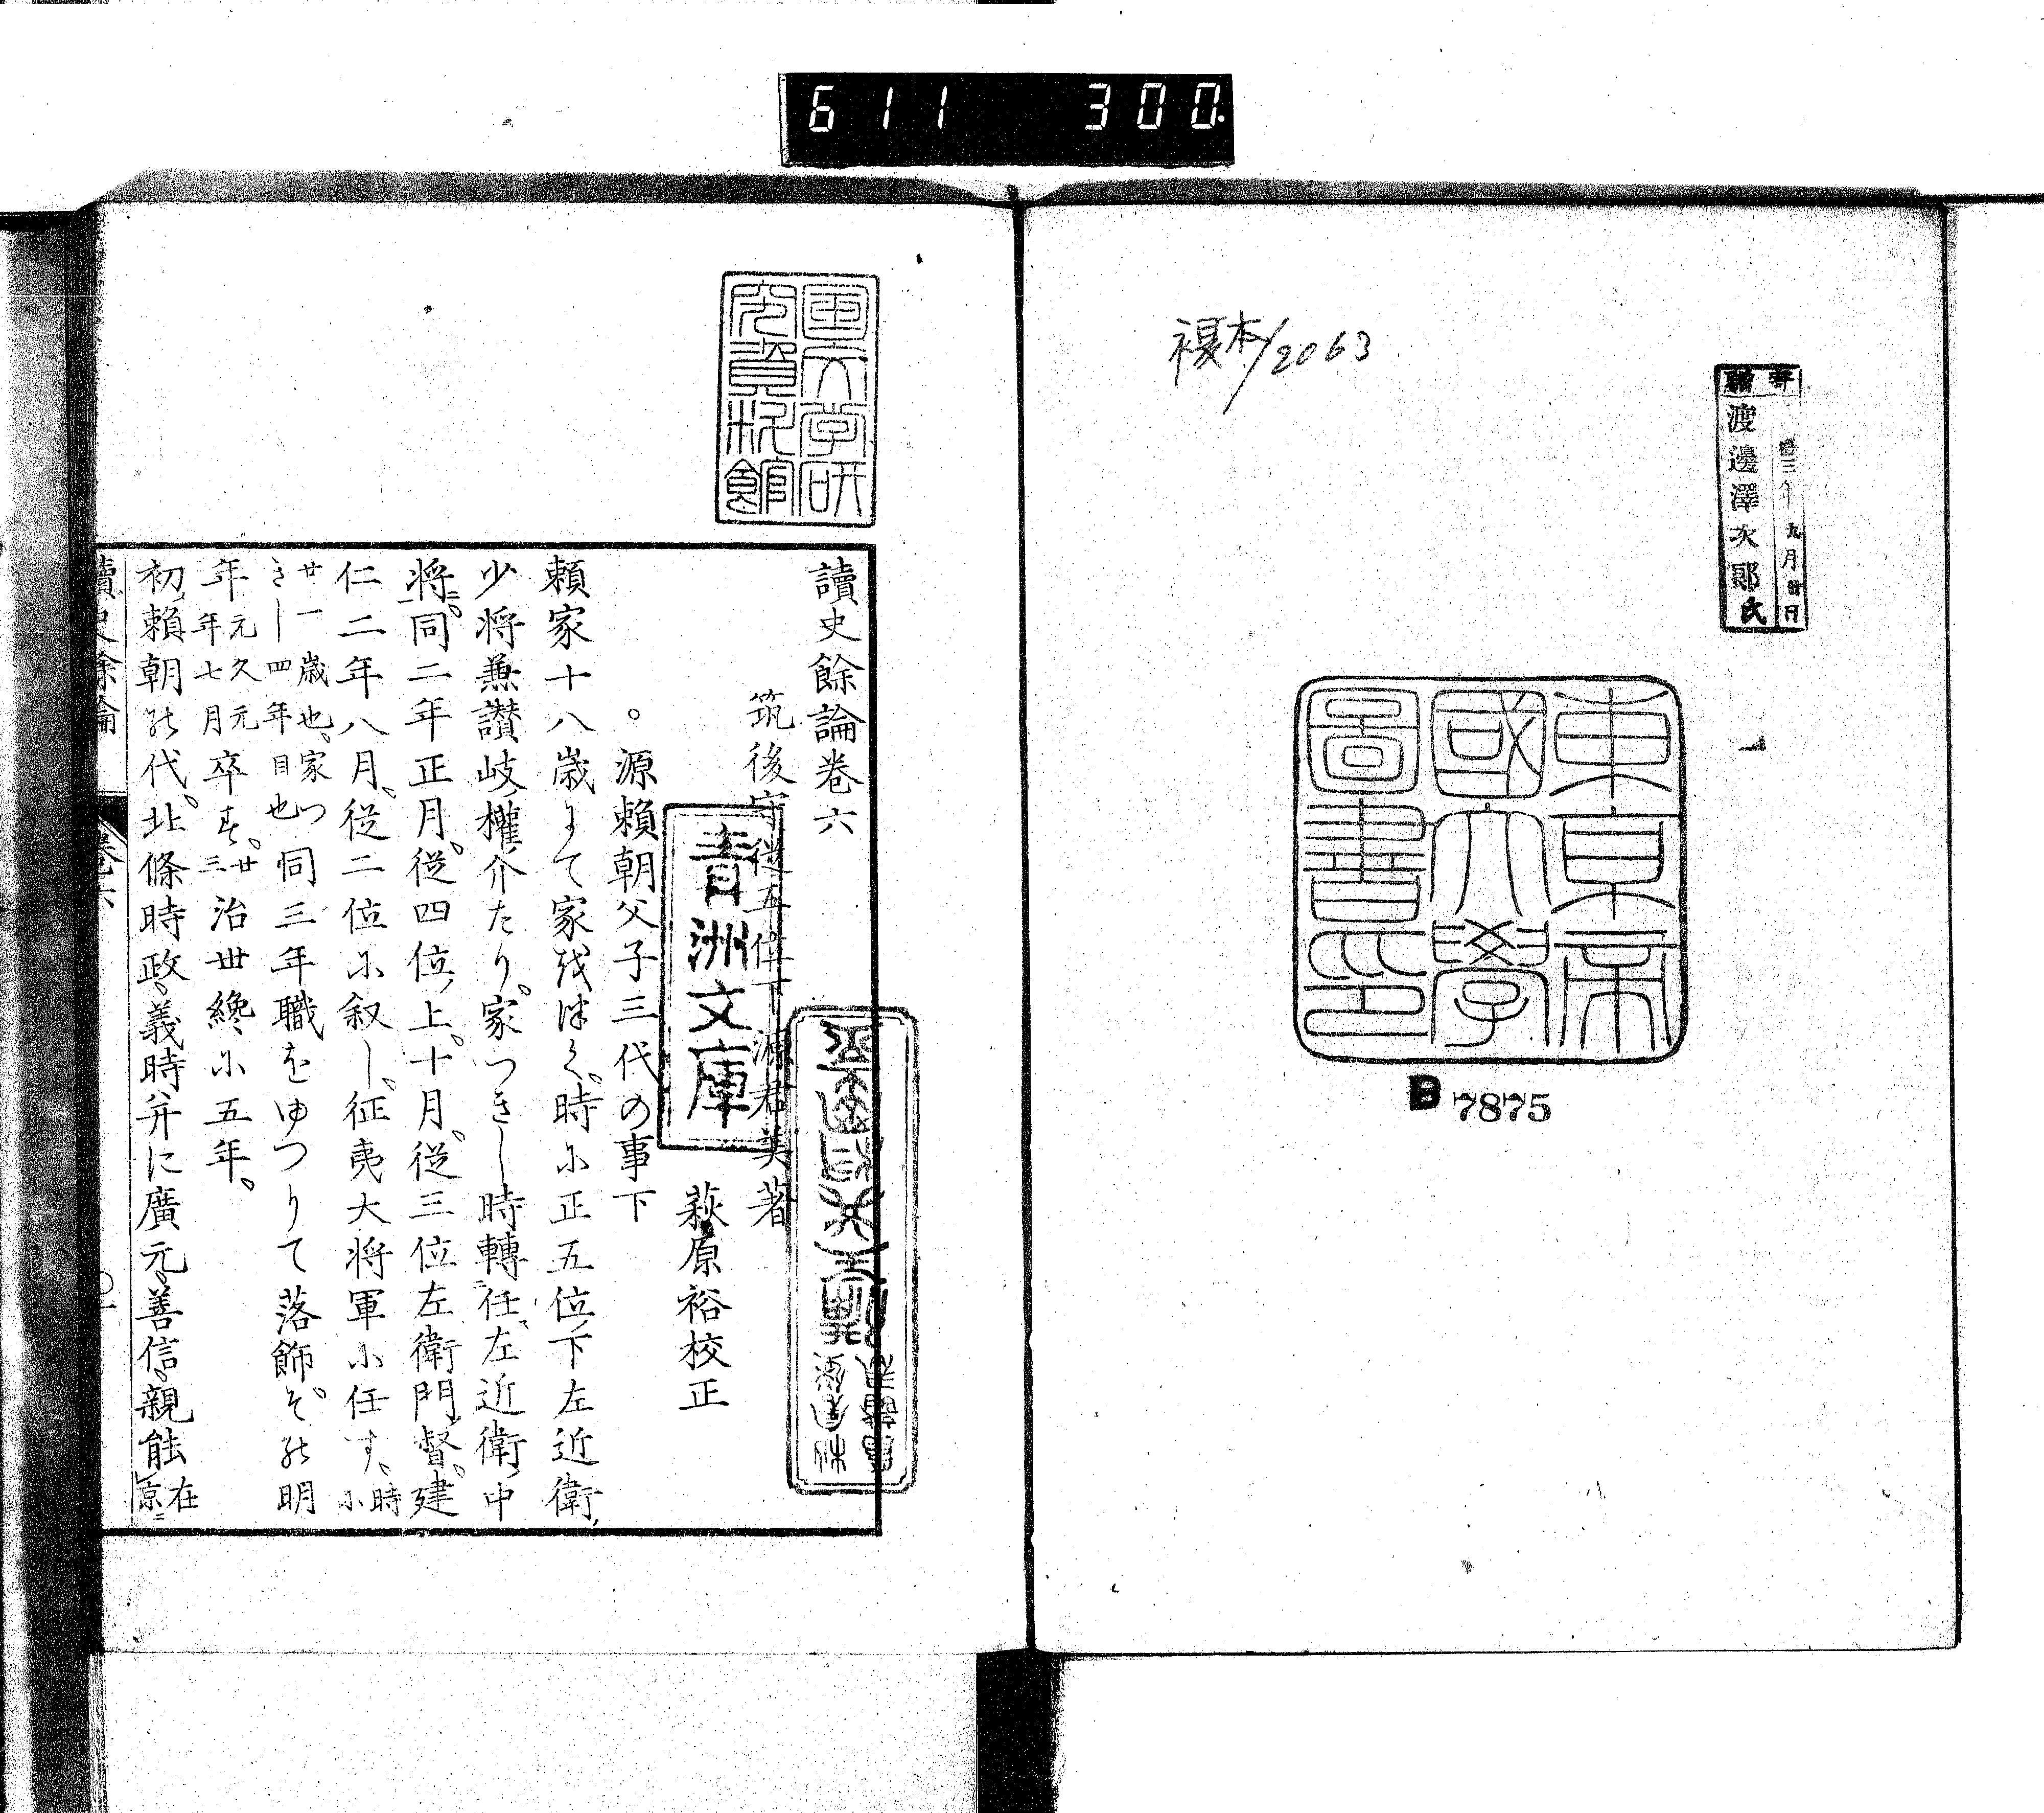 611 300.
複本/2063
寄贈
渡邊澤次郎氏
三年九月廿日
東京帝
國大學
圖書印
B 7875
国文学研
究資料館
讀史餘論卷六
筑後守從五位下源君美著
青洲文庫
萩原裕校正
。源賴朝父子三代の事下
賴家十八歳にて家をはく。時に正五位下左近衛
少将兼讃岐權介たり。家つきし時轉任左近衛中
将。同二年正月。從四位上。十月。從三位左衛門督。建
仁二年八月。從二位に叙し。征夷大将軍に任す。時に
廿一歳也。家つきし四年目也
同三年職をゆつりて落飾そ。の明
年元久元年七月卒す。廿三治世纔に五年。
初賴朝の代。北條時政。義時幷に廣元。善信。親能在京
讀史餘論 卷六